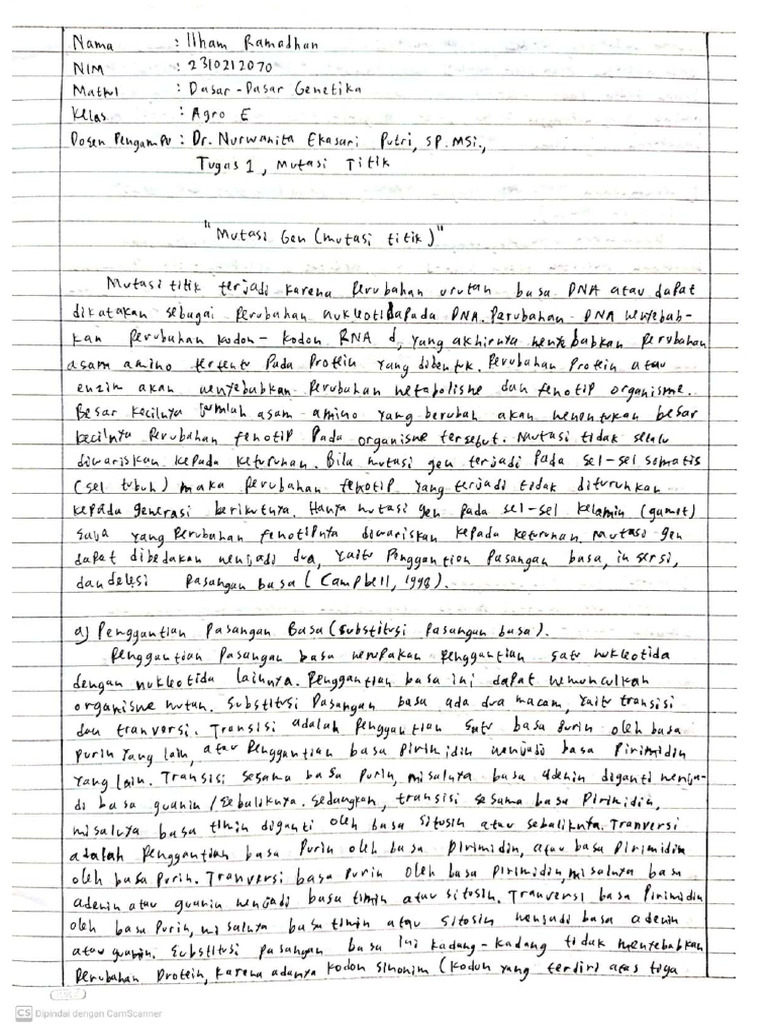 Nama : Ilham Ramadhan
NIM : 2310212070
Matkul : Dasar-Dasar Genetika
Kelas : Agro E
Dosen Pengampu : Dr. Nurwanita Ekasari Putri, SP. MSi.,
Tugas 1, Mutasi Titik
"Mutasi Gen (mutasi titik)"
Mutasi titik terjadi karena Perubahan urutan basa DNA atau dapat
dikatakan sebagai Perubahan nukleotida pada DNA. Perubahan DNA menyebab-
kan Perubahan kodon-kodon RNA d, yang akhirnya menyebabkan Perubahan
asam amino tertentu Pada Protein yang dibentuk. Perubahan Protein atau
enzim akan menyebabkan Perubahan metabolisme dan fenotip organisme.
Besar kecilnya jumlah asam amino yang berubah akan menentukan besar
kecilnya Perubahan fenotip Pada organisme tersebut. Mutasi tidak selalu
diwariskan kepada keturunan. Bila mutasi gen terjadi Pada sel-sel somatis
(sel tubuh) maka Perubahan fenotip yang terjadi tidak diturunkan
kepada generasi berikutnya. Hanya mutasi gen pada sel-sel kelamin (gamet)
saja yang Perubahan fenotipnya diwariskan kepada keturunan. Mutasi gen
dapat dibedakan menjadi dua, yaitu Penggantian Pasangan basa, insersi,
dan delesi Pasangan basa (Campbell, 1998).
a) Penggantian Pasangan Basa (substitusi Pasangan basa).
Penggantian Pasangan basa merupakan Penggantian satu nukleotida
dengan nukleotida lainnya. Penggantian basa ini dapat memunculkan
organisme mutan. Substitusi Pasangan basa ada dua macam, yaitu transisi
dan tranversi. Transisi adalah Penggantian satu basa Purin oleh basa
purin yang lain, atau Penggantian basa Pirimidin menjadi basa Pirimidin
yang lain. Transisi sesama basa Purin, misalnya basa adenin diganti menja-
di basa guanin/sebaliknya. Sedangkan, transisi sesama basa Pirimidin,
misalnya basa timin diganti oleh basa sitosin atau sebaliknya. Tranversi
adalah Penggantian basa Purin oleh basa pirimidin, atau basa Pirimidin
oleh basa Purin. Tranversi basa Purin oleh basa pirimidin, misalnya basa
adenin atau guanin menjadi basa timin atau sitosin. Tranversi basa Pirimidin
oleh basa Purin, misalnya basa timin atau sitosin menjadi basa adenin
atau guanin. Substitusi pasangan basa ini kadang-kadang tidak menyebabkan
Perubahan Protein, karena adanya kodon sinonim (kodon yang terdiri atas tiga
CS Dipindai dengan CamScanner